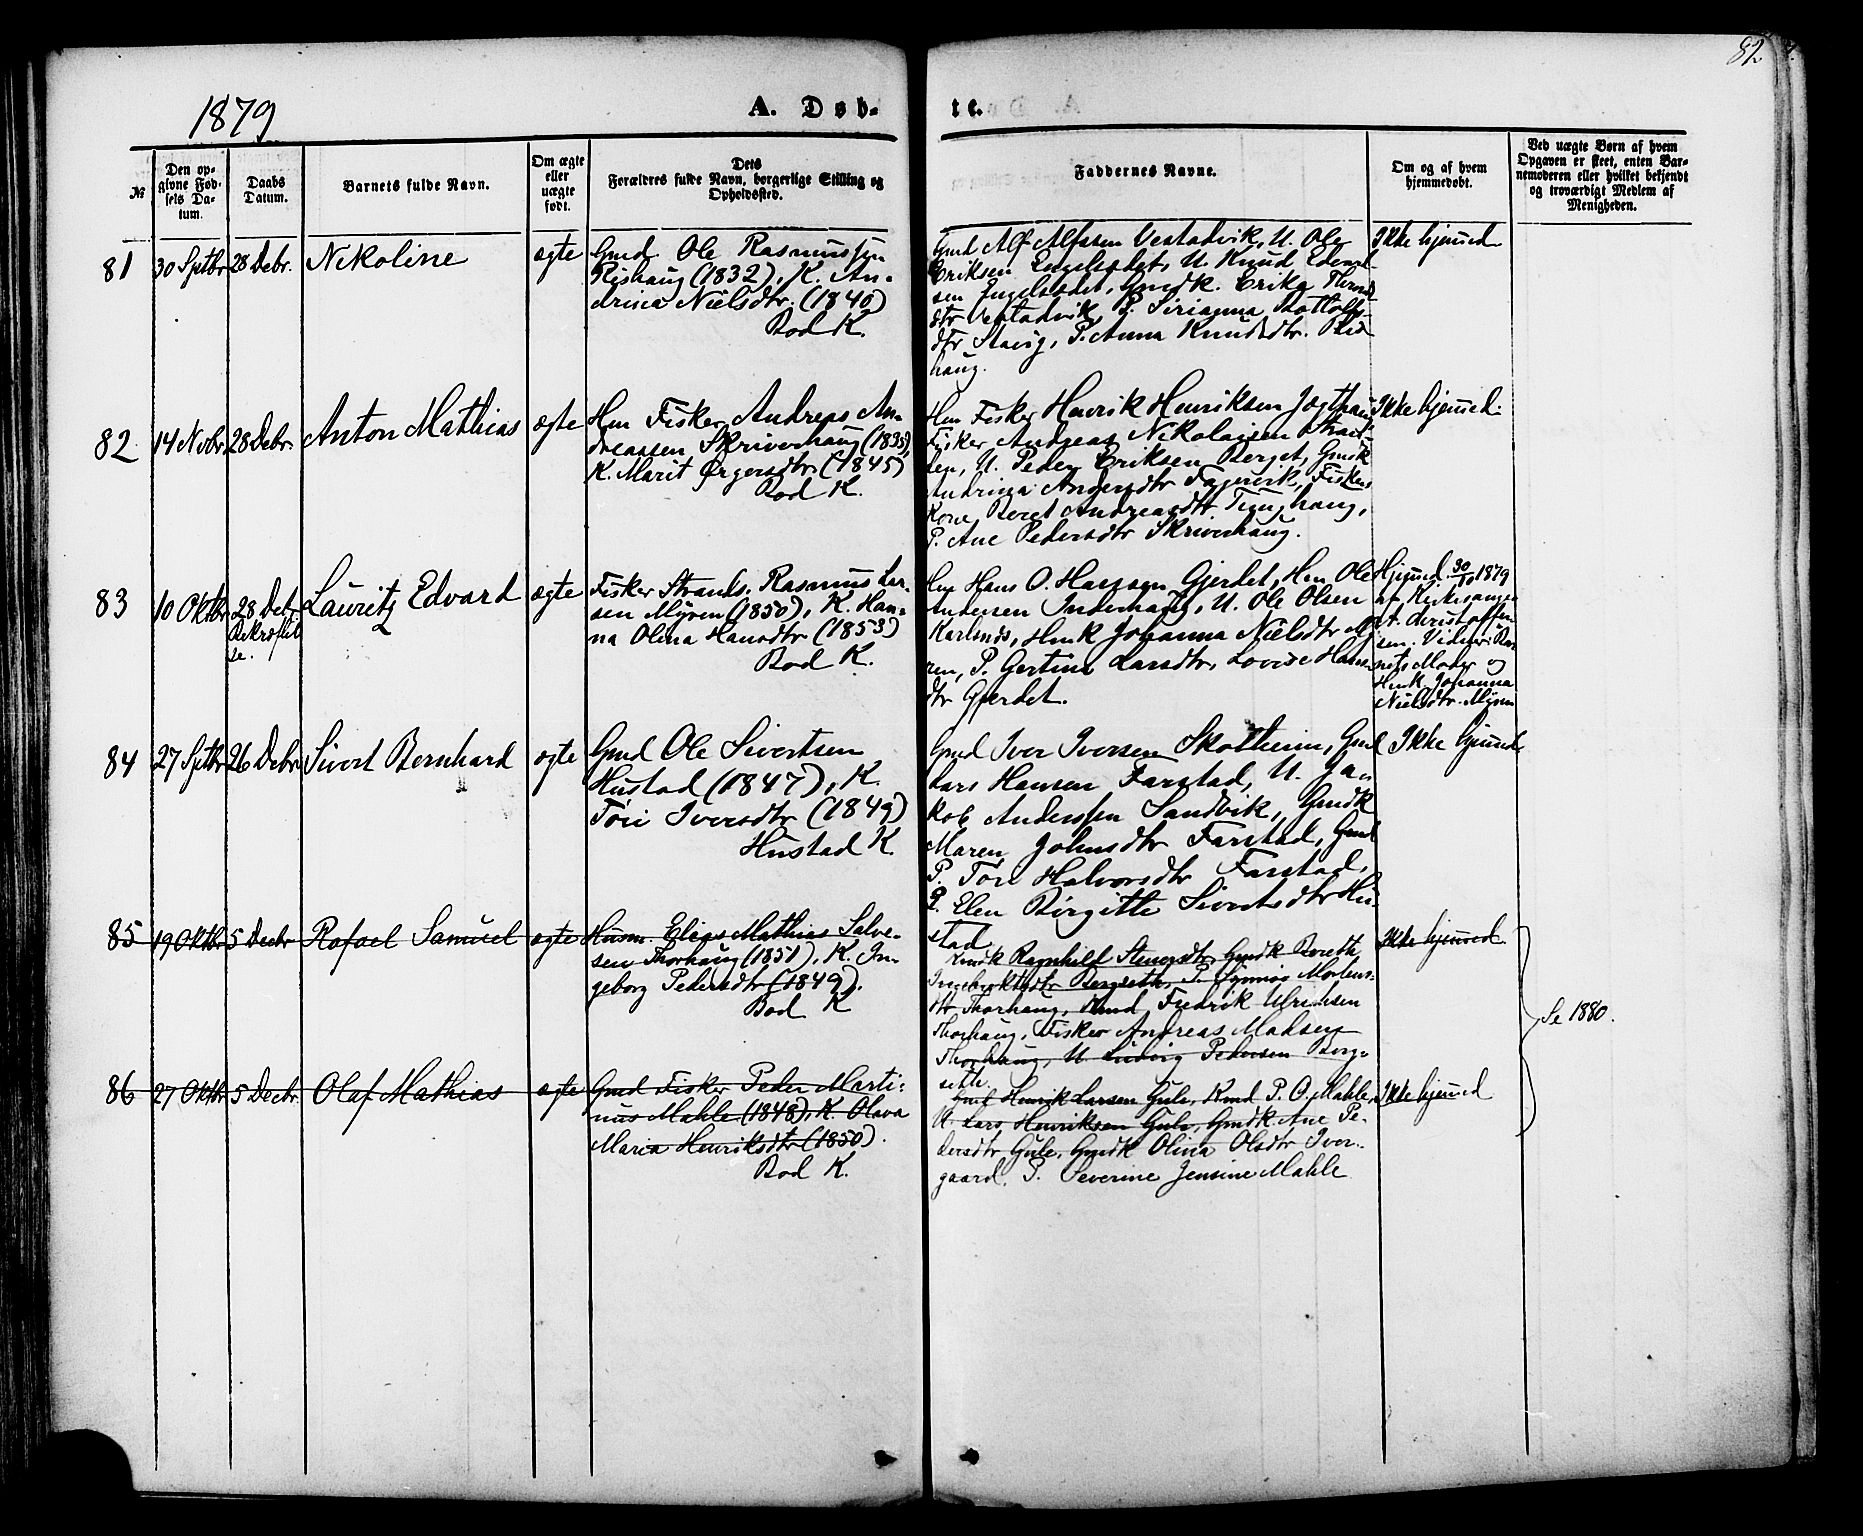 82
1879
A. Døb-
te.
№
Den op-
givne Fød-
sels Da-
tum.
Daabs
Datum.
Barnets fulde Navn.
Om ægte
eller
uægte
født.
Dets
Forældres fulde Navn, borgerlige Stilling og
Opholdssted.
Faddernes Navne.
Om og af hvem
hjemmedøbt.
Ved uægte Børn af hvem
Opgaven er skeet, enten Bar-
nemoderen eller hvilket bekjendt
og troværdigt Medlem af
Menigheden.
81
30 Sptbr
28 Debr.
Nikoline
ægte
Gmd. Ole Rasmussen
Rishaug (1832), K. An-
drina Nielsdtr. (1840)
Bod K.
Gmd Alf Alfssen Vestadvik, U. Ole
Eriksen Engelsedet, U. Knud Edvard-
sen Engelsedet, Gmdk. Erika
dtr Vestadvik, P. Sirianna
dtr Stavig, P. Anna Knudsdtr. Ris
haug.
Ikke hjemmed
82
14 Novbr
28 Debr.
Anton Mathias
ægte
Hm Fisker Andreas An-
dreassen Skriverhaug (1835),
K. Marit Ørgersdtr. (1845)
Bod K.
Hm Fisker Henrik Henriksen Jægthaug
Fisker Andreas Nikolaisen Stran-
den, U. Peder Eriksen Berget, Gmdk
Andrina Andersdtr Fagervik, Fiskers
Kone Beret Andreasdtr Tunghaug,
P. Ane Pedersdtr Skriverhaug.
Ikke hjemmed.
83
10 Oktbr
28 Debr
Bekræftel
se.
Lauritz Edvard
ægte
Fisker Strands. Rasmus Lar-
sen Myren (1850), K. Han-
na Olina Hansdtr (1853)
Bod K.
Hm Hans O. Hanssen Gjerdet, Hm Ole
Andersen Inderhaug, U. Ole Olsen
Karlsnds, Hmk Johanna Nielsdtr My
ren, P. Gertine Larsdtr, Lovise Hans
dtr Gjerdet.
Hjemmed. 30/10 1879
af Kirkesanger
A. Christoffer-
sen. Vidner: Bar-
nets Moder og
Hmk. Johanna
Nielsdtr. Myren
84
27 Sptbr
26 Debr
Sivert Bernhard
ægte
Gmd Ole Sivertsen
Hustad (1847), K.
Tøri Iversdtr (1849)
Hustad K.
Gmd Iver Iversen Skotheim, Gmd
Lars Hansen Farstad, U. Ja-
kob Anderssen Sandvik, Gmdk
Maren Johnsdtr Farstad, Gmd
P. Tøri Halvorsdtr Farstad,
P. Elen Birgitte Sivertsdtr Hu-
stad
Ikke hjemmed
85
19 Oktbr
5 Decbr
Rafael Samuel
ægte
Husm. Elias Mathias Salve-
sen Thorhaug (1851), K. In-
geborg Pedersdtr (1849).
Bod K
Kmdk Ragnhild Stenersdtr, Gmdk Berethe
Ingebrektsdtr Bergseth, P. Synnøv Mortens-
dtr Thorhaug, Kmd Fredrik Ulrichsen
Thorhaug, Fisker Andreas Madsen
Thorhaug, U Ludvig Pedersen Berg-
seth.
Ikke hjemmed.
Se 1880.
86
27 Oktbr
5 Decbr.
Olaf Mathias
ægte
Gmd Fisker Peder Marti-
nus Mahle (1848), K. Olava
Maria Henriksdtr (1850).
Bod K.
Gmd Henrik Larsen Gule, Kmd P. O. Mahle,
U. Lars Henriksen Gule, Gmdk Ane Pe-
dersdtr Gule, Gmdk Olina Olsdtr Iver-
gaard, P. Severine Jensine Mahle
Ikke hjemmed